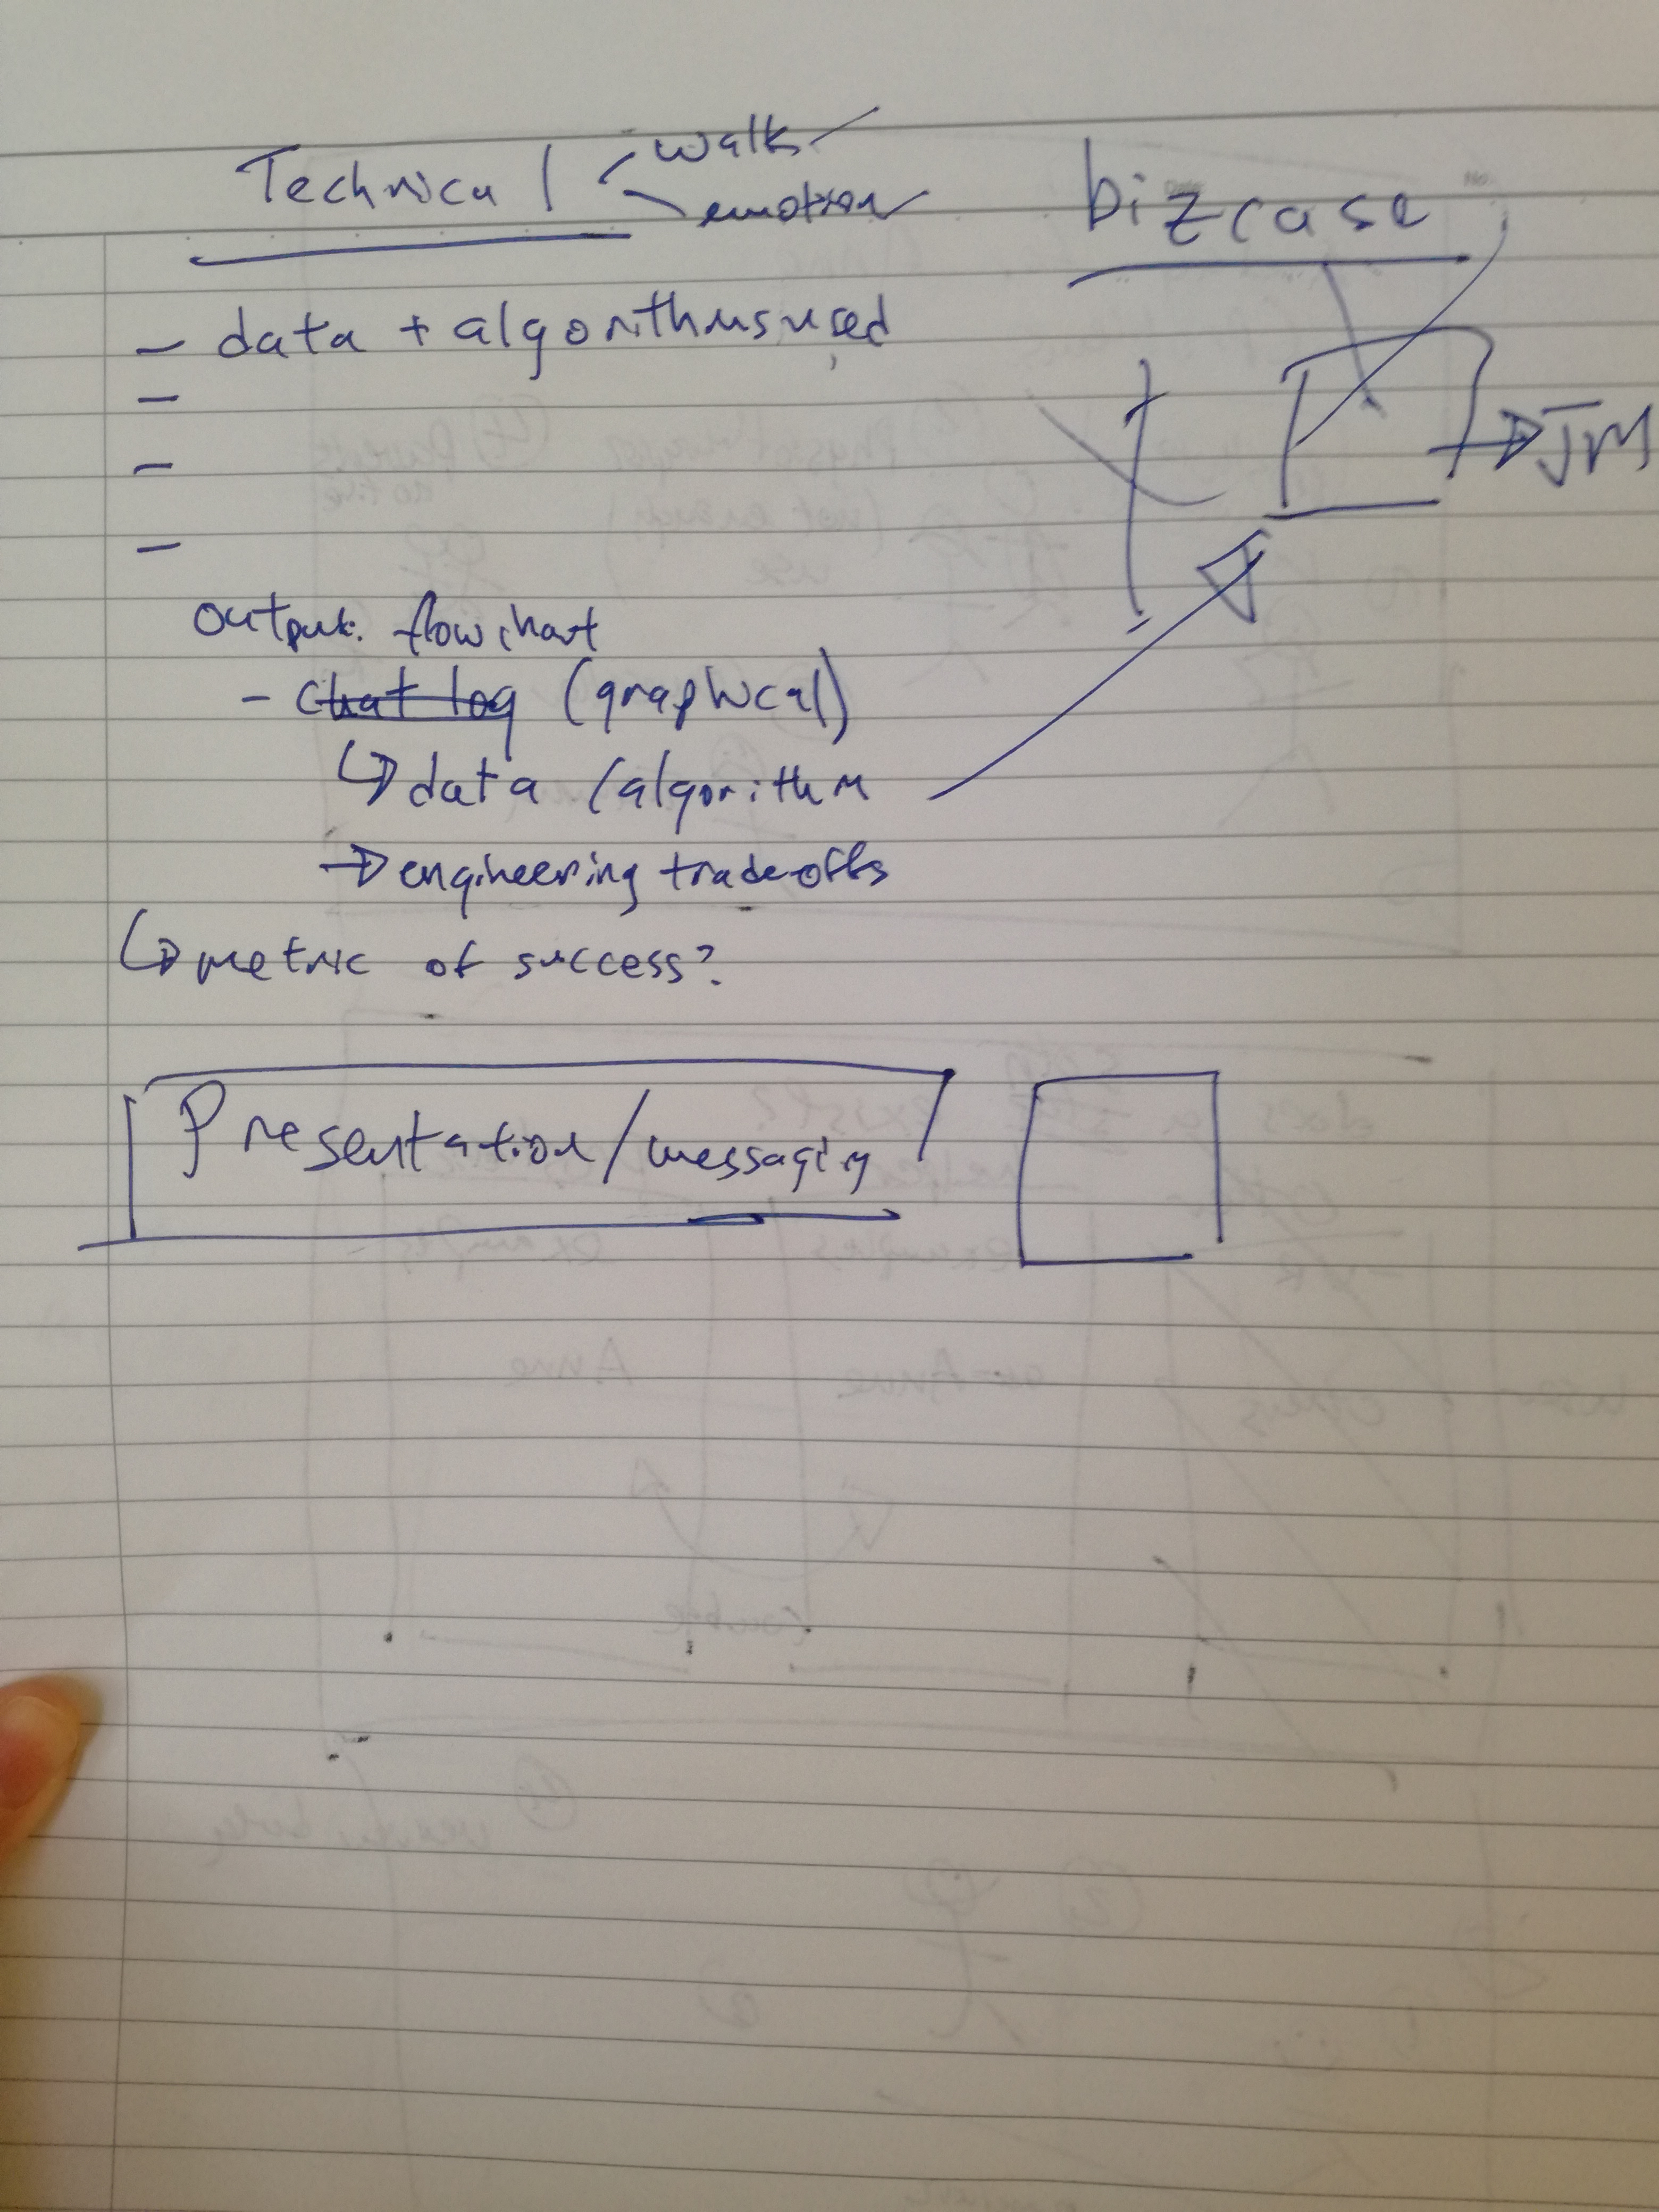 Technical
walk
emotion
bizcase
- data + algorithms used
-
-
-
output: flowchart
- chat log (graphical)
↳ data / algorithm
→ engineering tradeoffs
↳ metric of success?
JM
Presentation/messaging